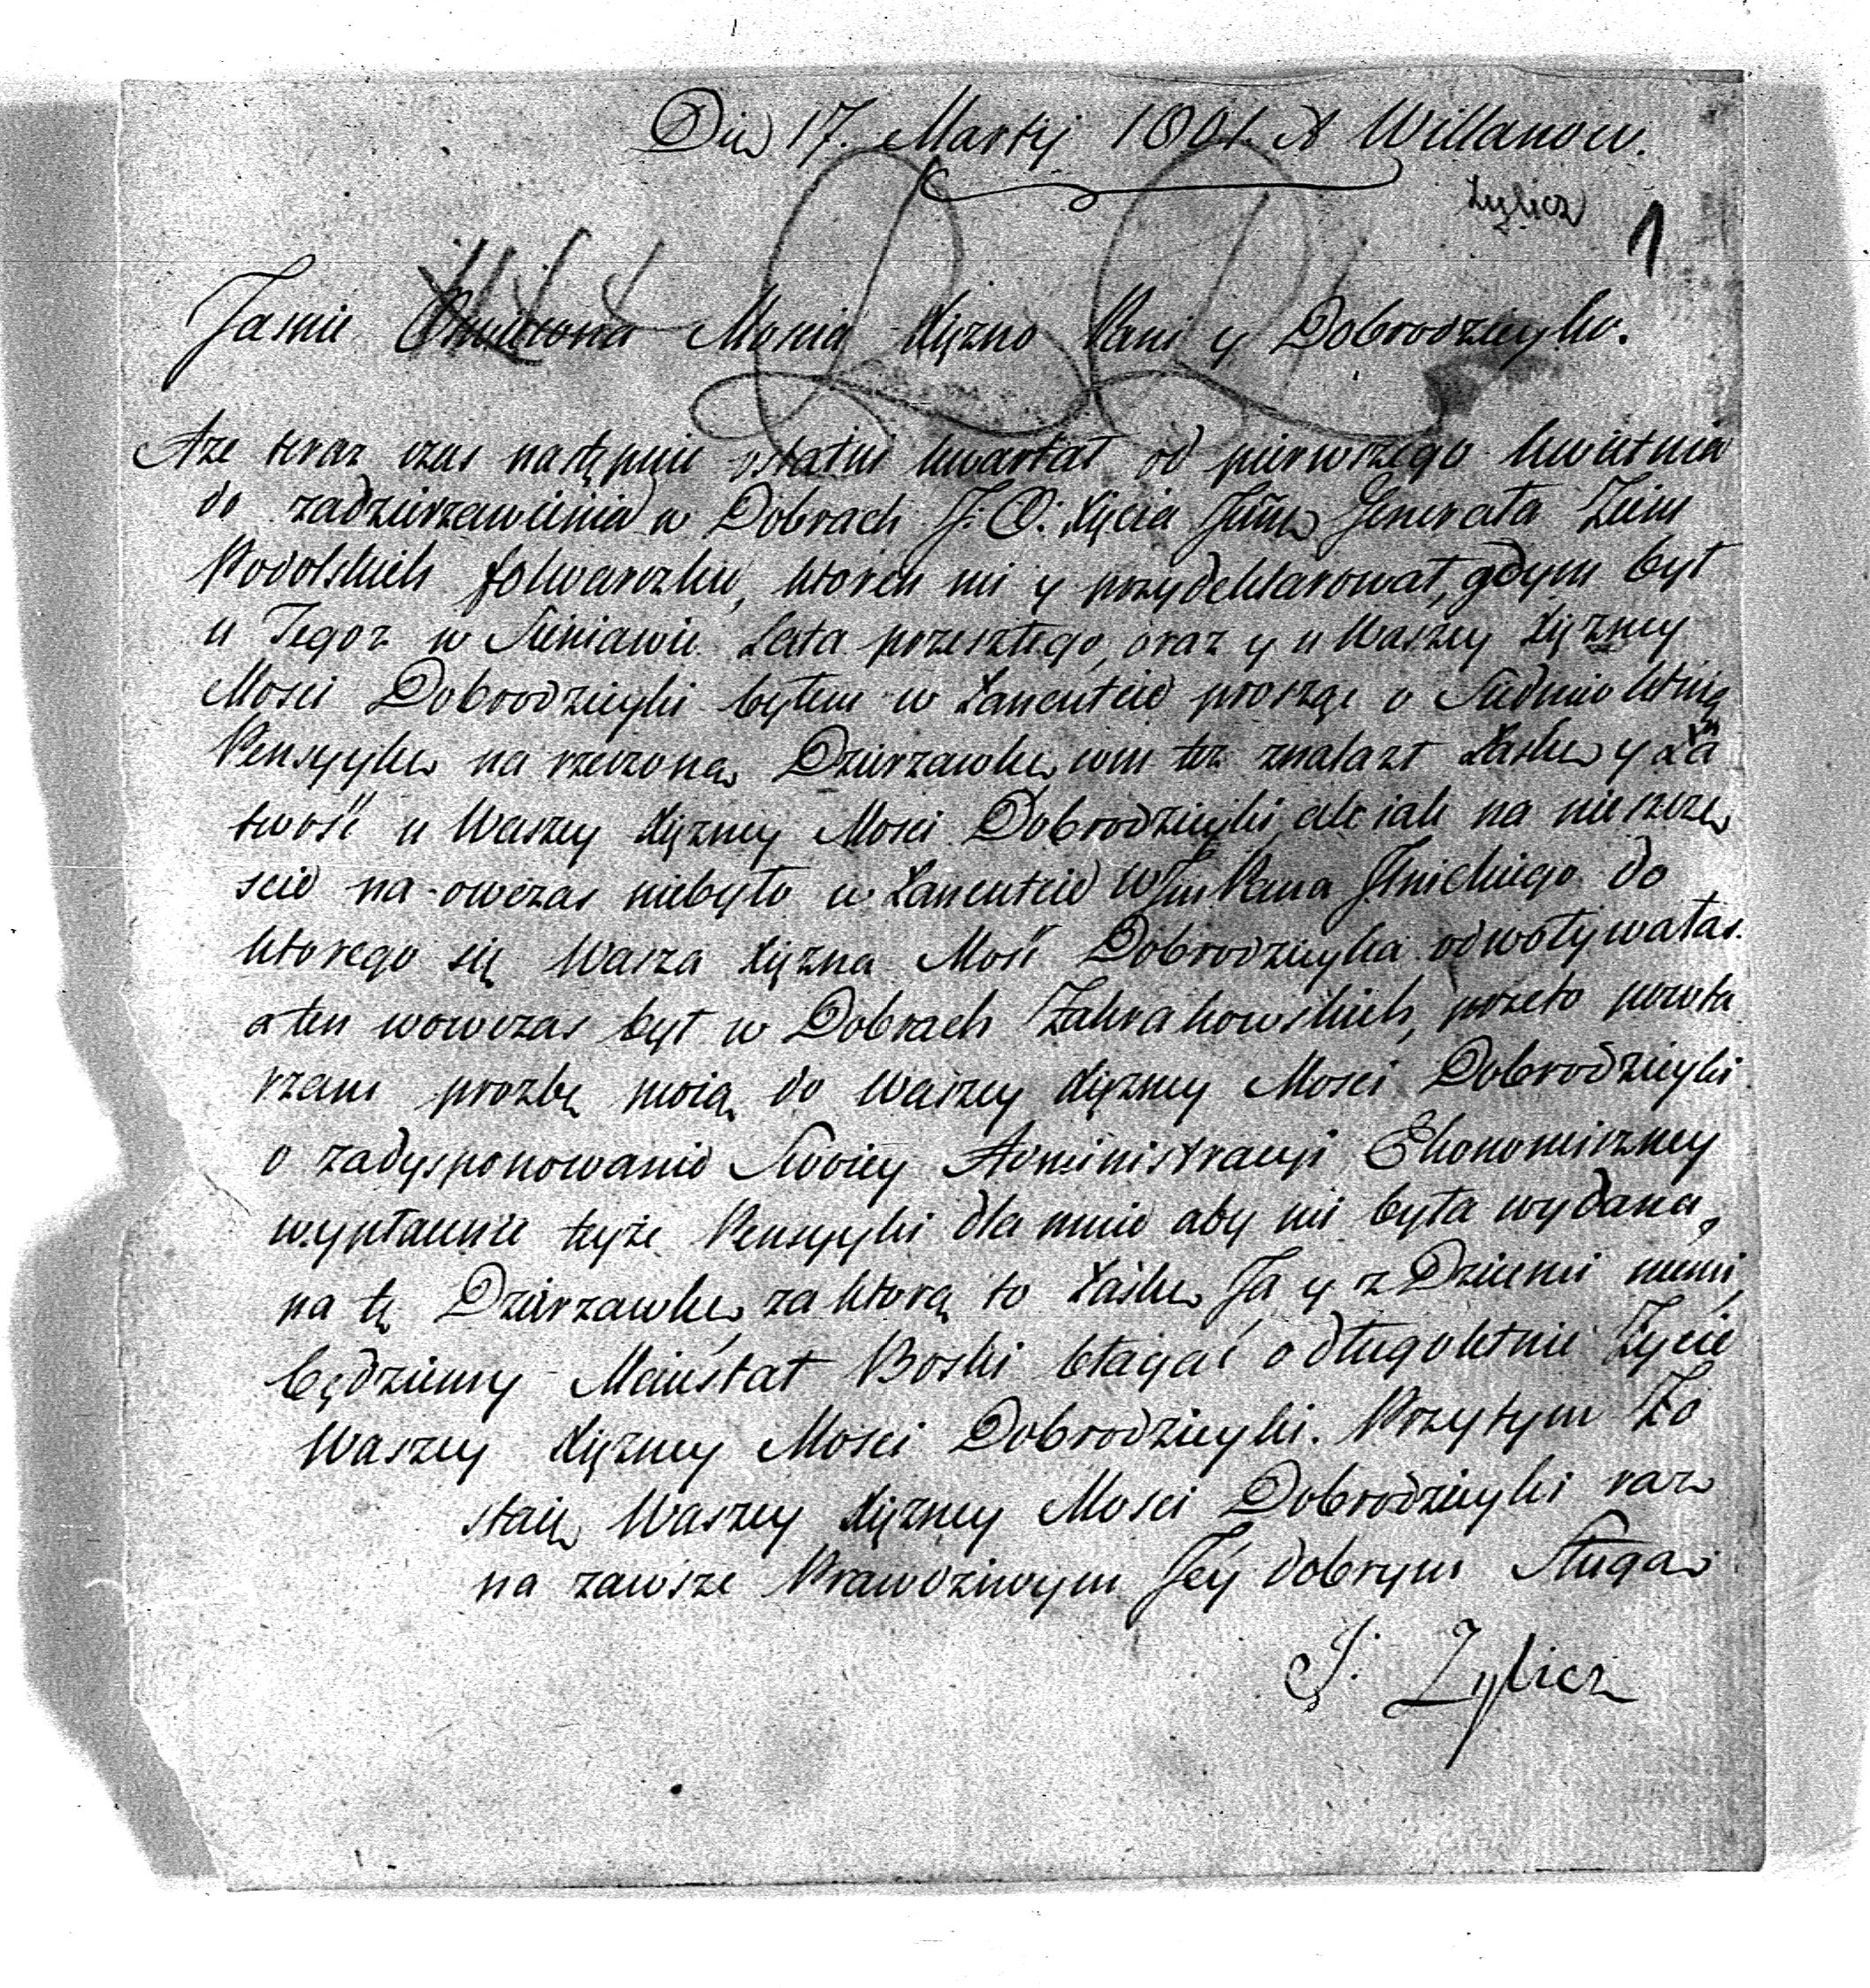 Die 17. Martij 1801. A Willanow.
Zylicz 1
Jasnie Oswiecona Moscia Xięzno Pani y Dobrodzieyko.
Aze teraz czas nastęmpuie ostatni kwartał od pierwszego kwietnia
do zadzierzawienia w Dobrach J: O: Xięcia Jmci Generała Ziem
Podolskich folwarczku, ktoren mi y przydeklarował, gdym był
u Tegoz w Sieniawie Lata przeszłego, oraz y u Waszey Xięzney
Mosci Dobrodzieyki byłem w Łancutcie prosząc o Siedmio letnią
Pensyykę na rzeczoną Dzierzawkę, wm tez znalazł Łaskę y Ła
twość u Waszey Xięzney Mosci Dobrodzieyki, ale iak na nieszczę
scie na owczas niebyło w Łancutcie WJm Pana do
ktorego się Wasza Xięzna Mość Dobrodzieyka odwoływałas.
a ten wowczas był w Dobrach Zakrakowskich, przeto powta
rzam prozbę moią do Waszey Xięzney Mosci Dobrodzieyki
o zadysponowanie Swoiey Administracyi Ekonomiczney
wypłacenie teyże Pensyyki dla mnie aby mi była wydana,
na tę Dzierzawkę, za ktorą to Łaskę Ja y z Dziecmi memi,
będziemy Maiestat Boski błagać o długoletnie Życie
Waszey Xięzney Mosci Dobrodzieyki. Przytym Zo
staię Waszey Xięzney Mosci Dobrodzieyki raz
na zawsze Prawdziwym Jey dobrym Sługą
J: Zylicz